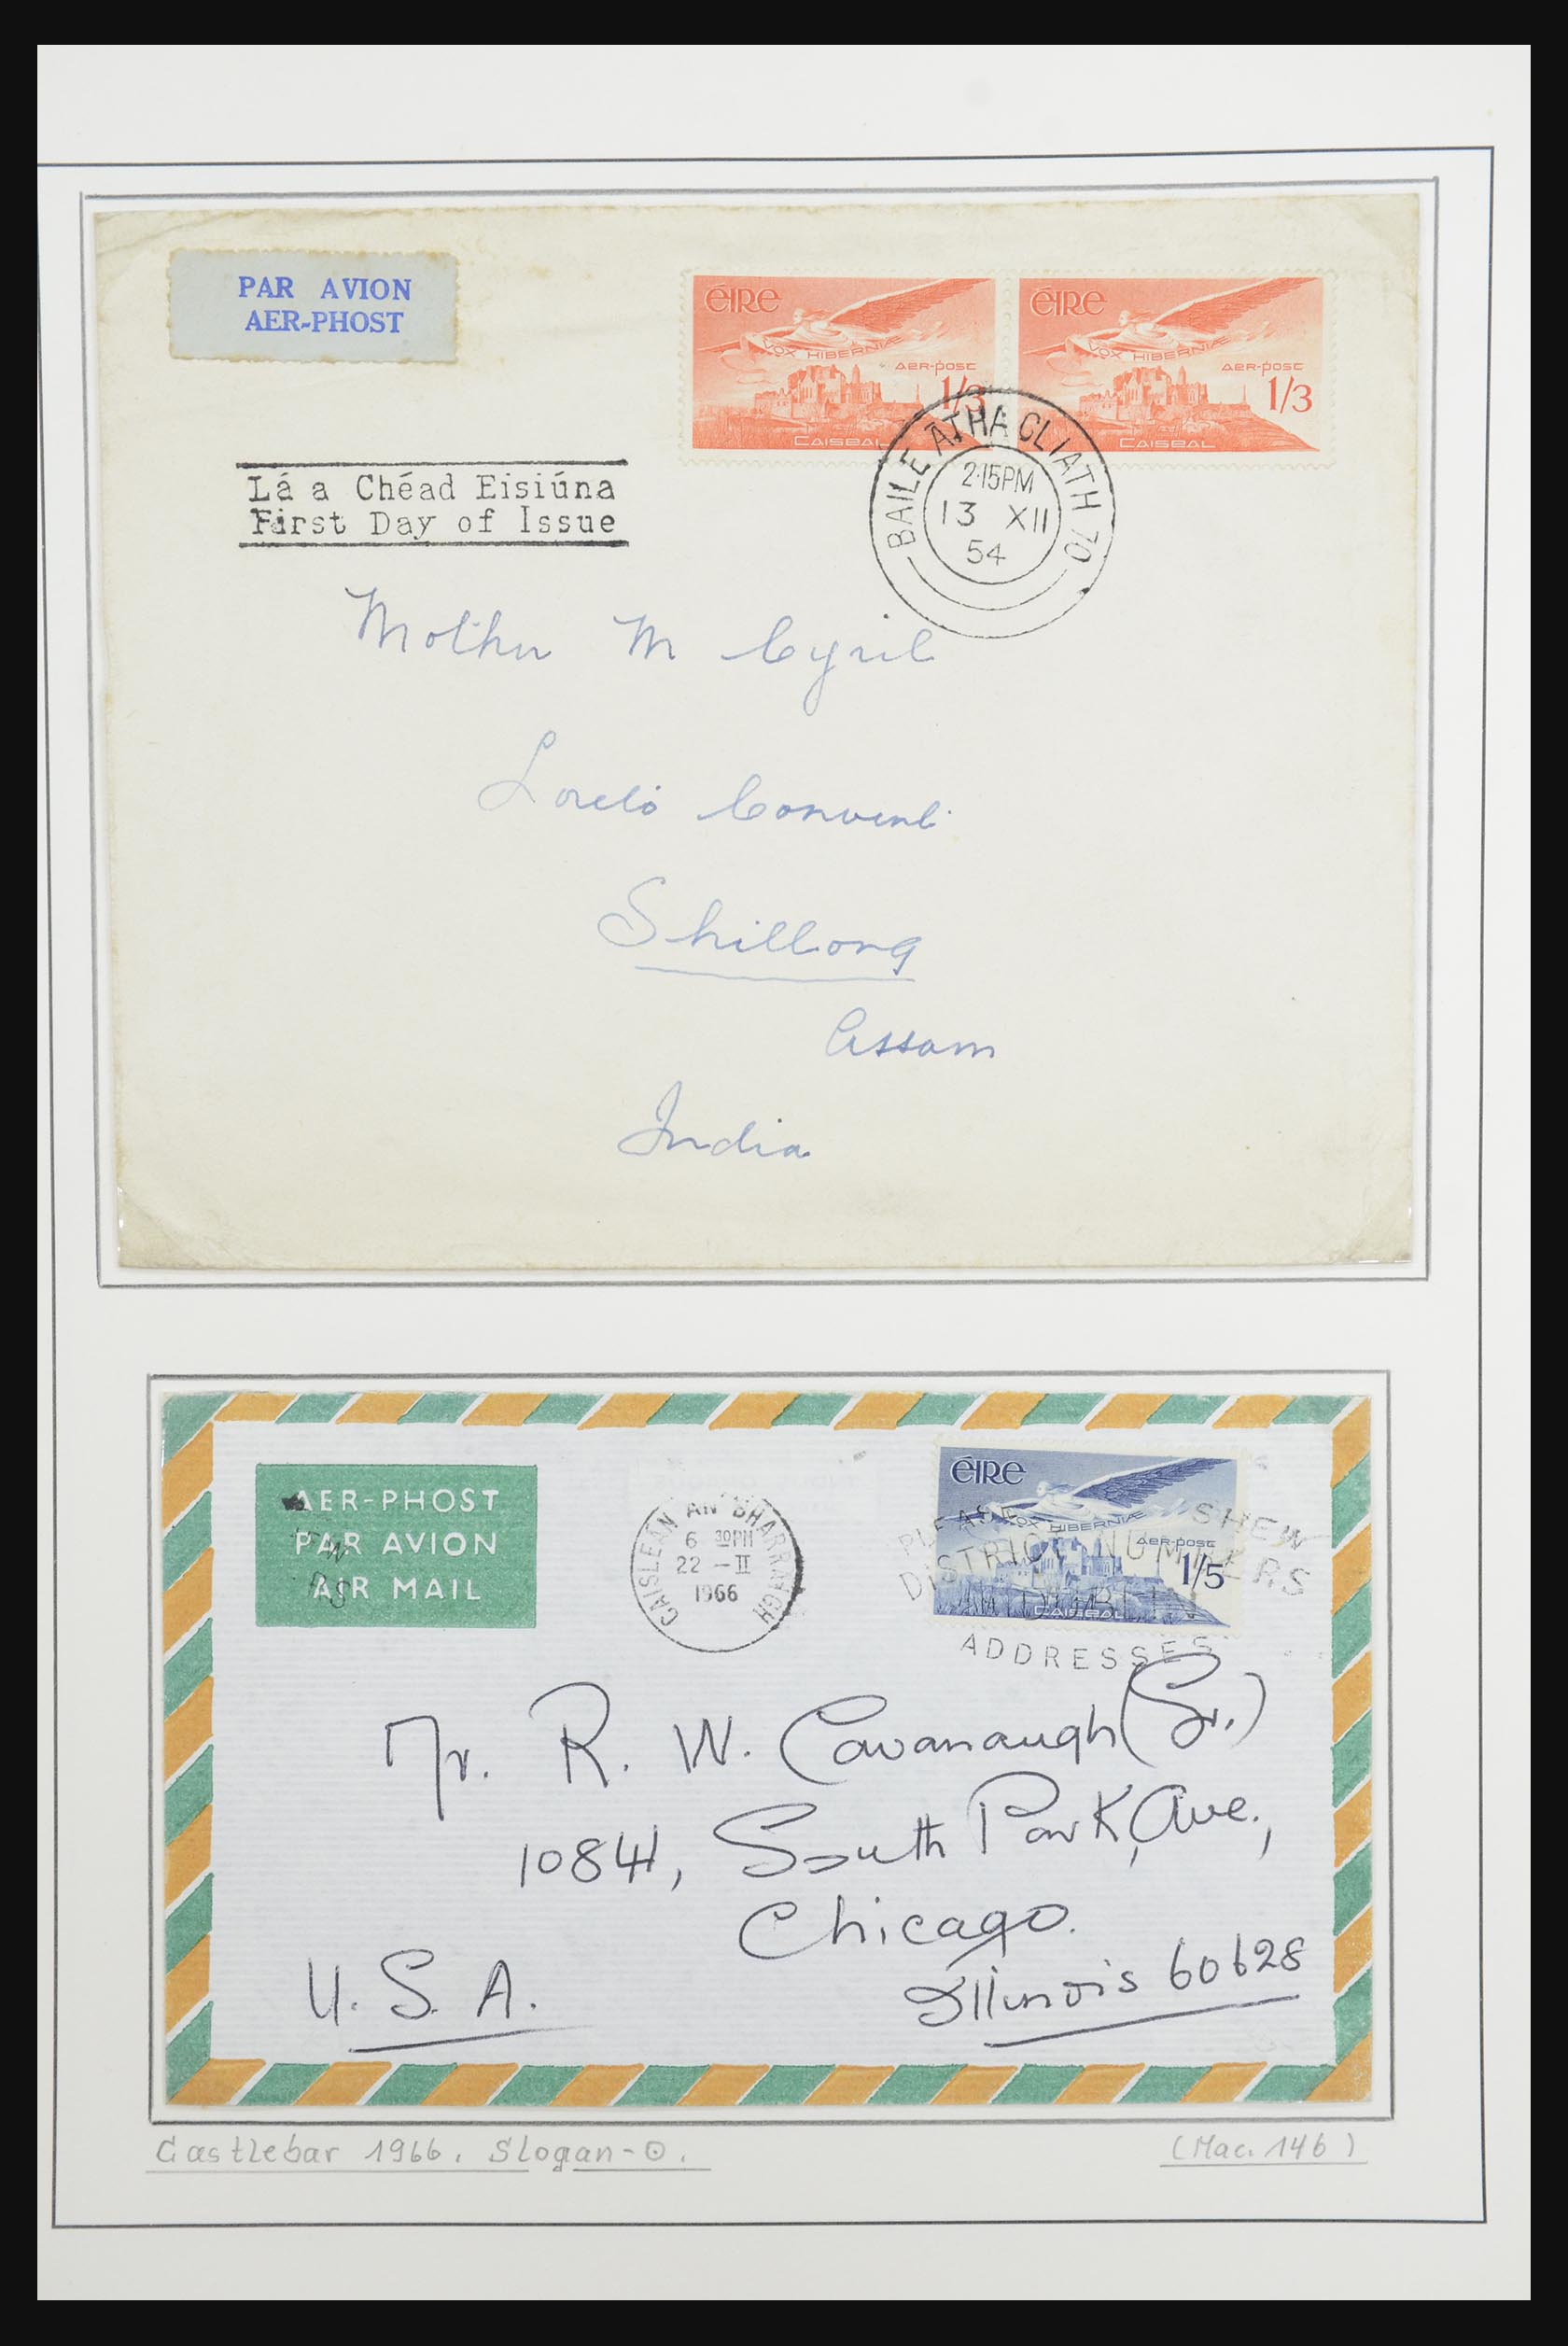 PAR AVION
AER-PHOST
ÉIRE
VOX HIBERNIÆ
AER-POST
1/3
CAISEAL
ÉIRE
VOX HIBERNIÆ
AER-POST
1/3
CAISEAL
BAILE ÁTHA CLIATH 70
2·15PM
13 XII
54
Lá a Chéad Eisiúna
First Day of Issue
Mother M Cyril
Loreto Convent
Shillong
Assam
India
AER-PHOST
PAR AVION
AIR MAIL
CAISLEAN AN BHARRAIGH
6 30PM
22 -II
1966
ÉIRE
VOX HIBERNIÆ
AER-POST
1/5
CAISEAL
PLEASE SHEW
DISTRICT NUMBERS
ADDRESSES
Mr. R. W. Cavanaugh (Sr.)
10841, South Park, Ave.,
Chicago.
Illinois 60628
U.S.A.
Castlebar 1966. Slogan-⊙.
(Mac. 146)